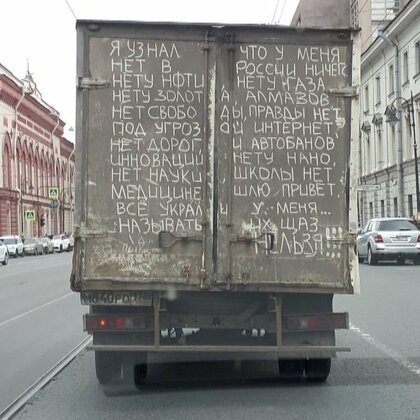 Я УЗНАЛ ЧТО У МЕНЯ
НЕТ В РОССИИ НИЧЕГ
НЕТУ НФТИ НЕТУ ГАЗА
НЕТУ ЗОЛОТ А, АЛМАЗОВ
НЕТ СВОБО ДЫ, ПРАВДЫ НЕТ
ПОД УГРОЗ ОЙ ИНТЕРНЕТ
НЕТ ДОРОГ И АВТОБАНОВ
ИННОВАЦИЙ НЕТУ НАНО,
НЕТ НАУКИ ШКОЛЫ НЕТ
МЕДИЦИНЕ ШЛЮ ПРИВЕТ.
ВСЁ УКРАЛ И У МЕНЯ...
НАЗЫВАТЬ ИХ ЩАЗ
НЕЛЬЗЯ!